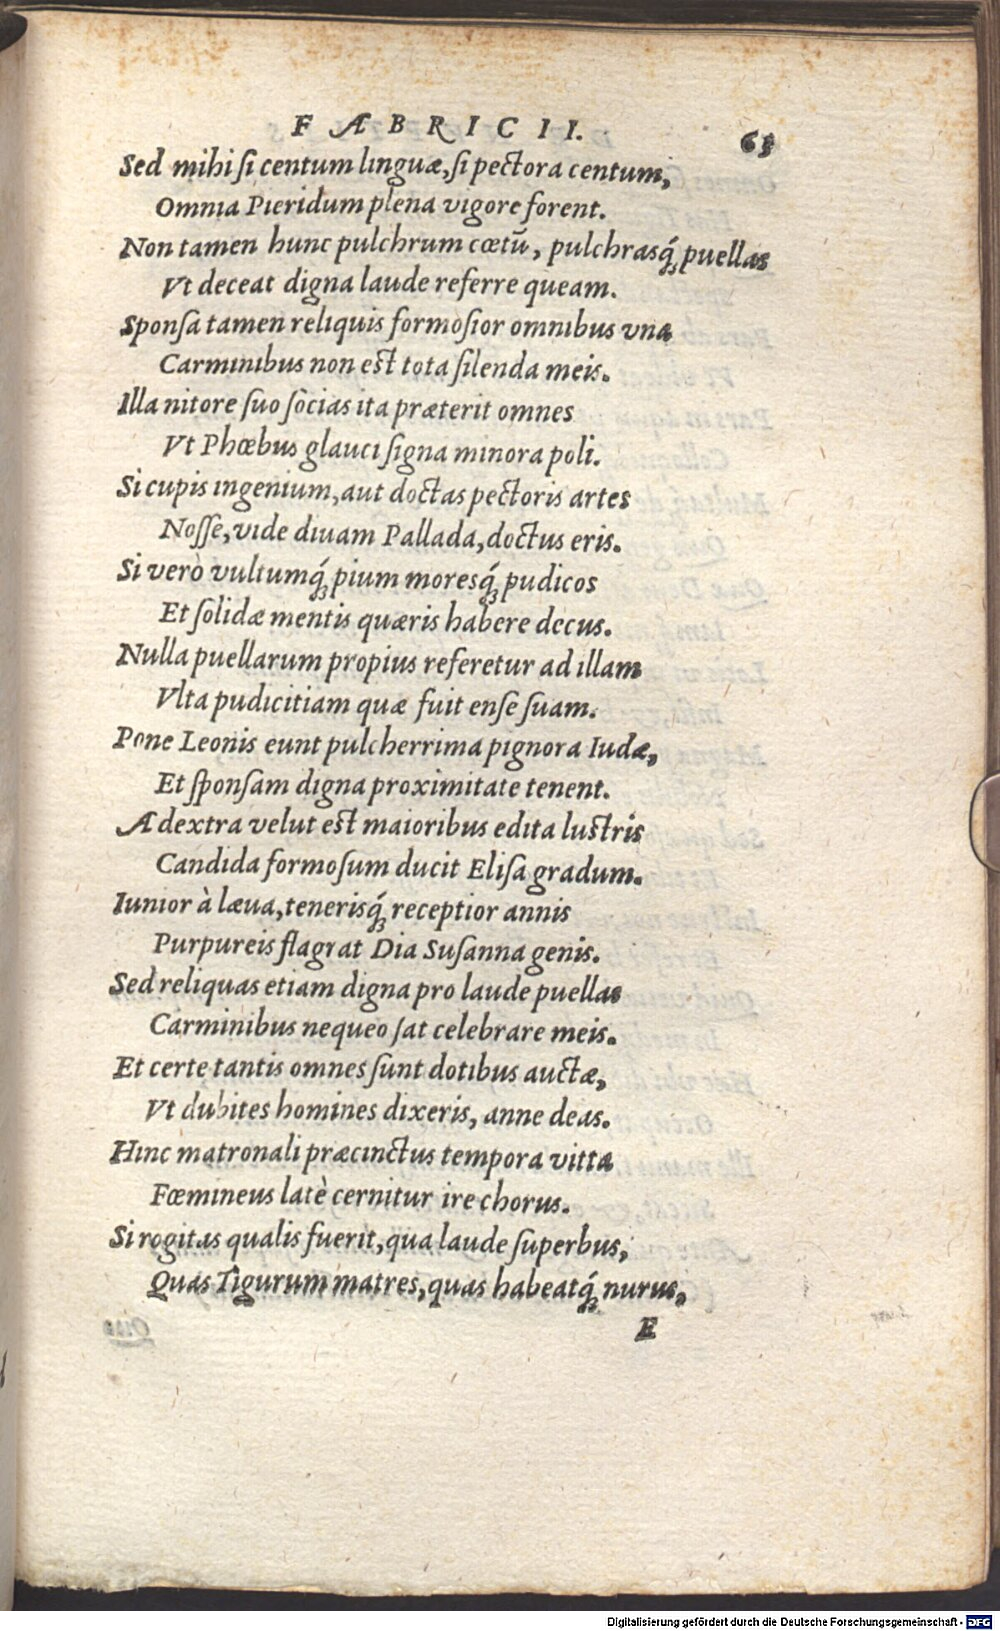 FABRICII. 63
Sed mihi si centum linguæ, si pectora centum,
Omnia Pieridum plena vigore forent.
Non tamen hunc pulchrum cœtū, pulchrasq́; puellas
Vt deceat digna laude referre queam.
Sponsa tamen reliquis formosior omnibus vna
Carminibus non est tota silenda meis.
Illa nitore suo sòcias ita præterit omnes
Vt Phœbus glauci signa minora poli.
Si cupis ingenium, aut doctas pectoris artes
Nosse, vide diuam Pallada, doctus eris.
Si verò vultumq́; pium moresq́; pudicos
Et solidæ mentis quæris habere decus.
Nulla puellarum propius referetur ad illam
Vlta pudicitiam quæ fuit ense suam.
Pone Leonis eunt pulcherrima pignora Iudæ,
Et sponsam digna proximitate tenent.
A dextra velut est maioribus edita lustris
Candida formosum ducit Elisa gradum.
Iunior à læua, tenerisq́; receptior annis
Purpureis flagrat Dia Susanna genis.
Sed reliquas etiam digna pro laude puellas
Carminibus nequeo sat celebrare meis.
Et certe tantis omnes sunt dotibus auctæ,
Vt dubites homines dixeris, anne deas.
Hinc matronali præcinctus tempora vitta
Fœmineus latè cernitur ire chorus.
Si rogitas qualis fuerit, qua laude superbus,
Quas Tigurum matres, quas habeatq́; nurus,
E
Digitalisierung gefördert durch die Deutsche Forschungsgemeinschaft - DFG